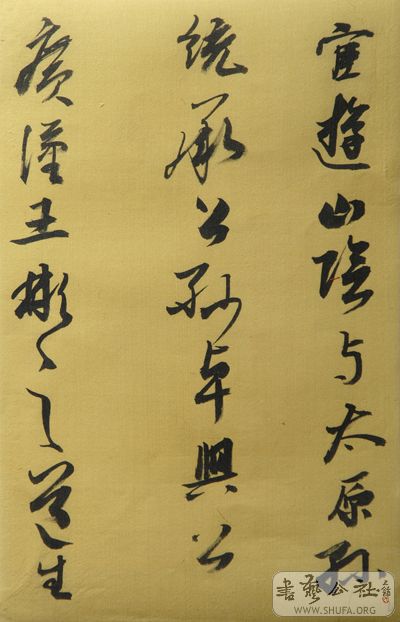 宦遊山陰与太原孙
統承公孙卓興公
廣漢王彬之道生
書藝公社
WWW.SHUFA.ORG